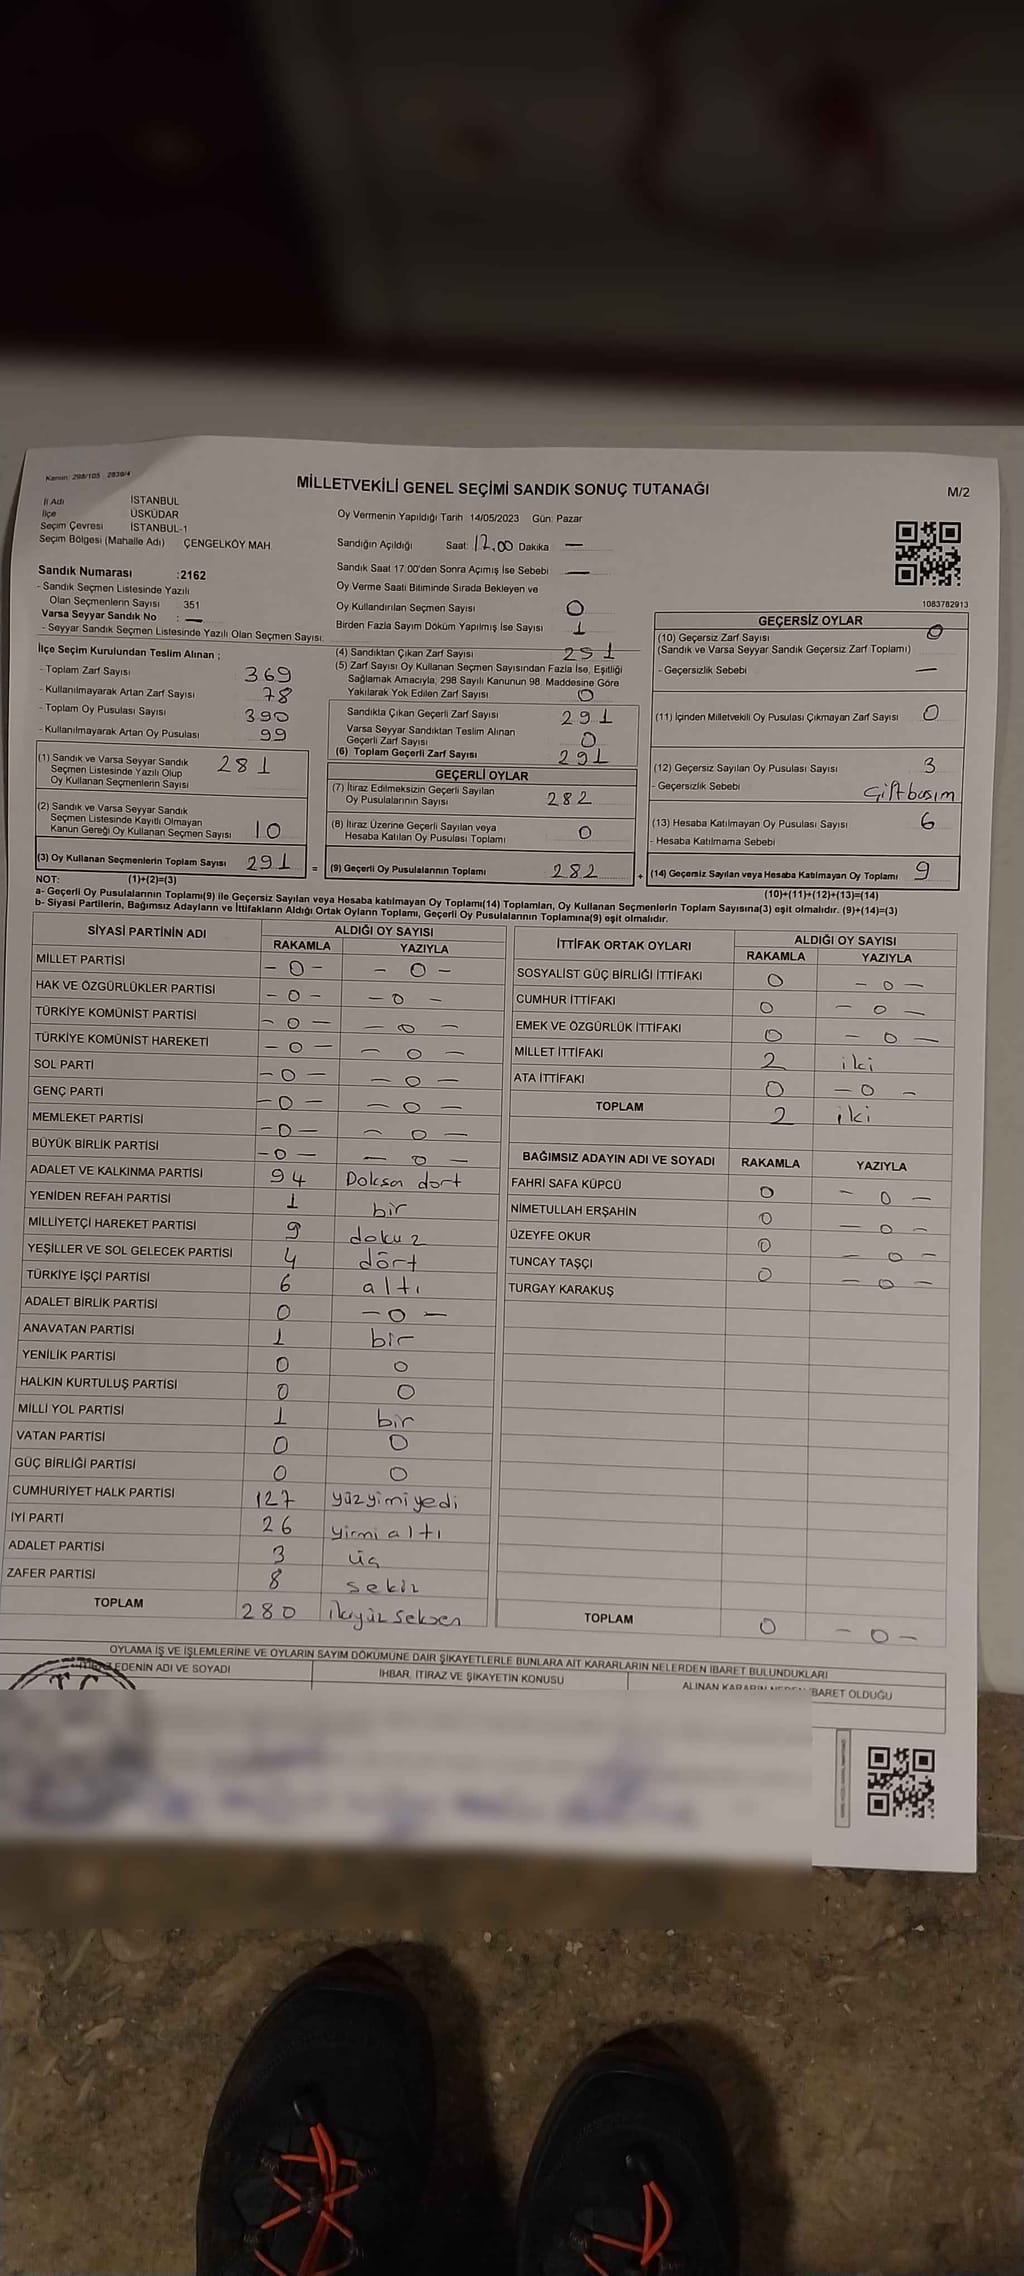 Kanun: 298/105 - 2839/4
MİLLETVEKİLİ GENEL SEÇİMİ SANDIK SONUÇ TUTANAĞI
M/2
İl Adı İSTANBUL
İlçe ÜSKÜDAR
Seçim Çevresi İSTANBUL-1
Seçim Bölgesi (Mahalle Adı) ÇENGELKÖY MAH.
Oy Vermenin Yapıldığı Tarih 14/05/2023 Gün: Pazar
Sandığın Açıldığı Saat: 17.00 Dakika —
Sandık Saat 17:00'den Sonra Açımış İse Sebebi —
Oy Verme Saati Bitiminde Sırada Bekleyen ve
Oy Kullandırılan Seçmen Sayısı 0
Birden Fazla Sayım Döküm Yapılmış İse Sayısı 1
1083782913
Sandık Numarası :2162
- Sandık Seçmen Listesinde Yazılı
Olan Seçmenlerin Sayısı 351
Varsa Seyyar Sandık No : —
- Seyyar Sandık Seçmen Listesinde Yazılı Olan Seçmen Sayısı:
İlçe Seçim Kurulundan Teslim Alınan ;
- Toplam Zarf Sayısı 369
- Kullanılmayarak Artan Zarf Sayısı 78
- Toplam Oy Pusulası Sayısı 390
- Kullanılmayarak Artan Oy Pusulası 99
(1) Sandık ve Varsa Seyyar Sandık
Seçmen Listesinde Yazılı Olup
Oy Kullanan Seçmenlerin Sayısı 281
(2) Sandık ve Varsa Seyyar Sandık
Seçmen Listesinde Kayıtlı Olmayan
Kanun Gereği Oy Kullanan Seçmen Sayısı 10
(3) Oy Kullanan Seçmenlerin Toplam Sayısı 291 =
(4) Sandıktan Çıkan Zarf Sayısı 291
(5) Zarf Sayısı Oy Kullanan Seçmen Sayısından Fazla İse, Eşitliği
Sağlamak Amacıyla, 298 Sayılı Kanunun 98. Maddesine Göre
Yakılarak Yok Edilen Zarf Sayısı 0
Sandıkta Çıkan Geçerli Zarf Sayısı 291
Varsa Seyyar Sandıktan Teslim Alınan
Geçerli Zarf Sayısı 0
(6) Toplam Geçerli Zarf Sayısı 291
GEÇERLİ OYLAR
(7) İtiraz Edilmeksizin Geçerli Sayılan
Oy Pusulalarının Sayısı 282
(8) İtiraz Üzerine Geçerli Sayılan veya
Hesaba Katılan Oy Pusulası Toplamı 0
(9) Geçerli Oy Pusulalarının Toplamı 282 +
GEÇERSİZ OYLAR
(10) Geçersiz Zarf Sayısı 0
(Sandık ve Varsa Seyyar Sandık Geçersiz Zarf Toplamı)
- Geçersizlik Sebebi —
(11) İçinden Milletvekili Oy Pusulası Çıkmayan Zarf Sayısı 0
(12) Geçersiz Sayılan Oy Pusulası Sayısı 3
- Geçersizlik Sebebi Çift basım
(13) Hesaba Katılmayan Oy Pusulası Sayısı 6
- Hesaba Katılmama Sebebi
(14) Geçersiz Sayılan veya Hesaba Katılmayan Oy Toplamı 9
NOT: (1)+(2)=(3) (10)+(11)+(12)+(13)=(14)
a- Geçerli Oy Pusulalarının Toplamı(9) ile Geçersiz Sayılan veya Hesaba katılmayan Oy Toplamı(14) Toplamları, Oy Kullanan Seçmenlerin Toplam Sayısına(3) eşit olmalıdır. (9)+(14)=(3)
b- Siyasi Partilerin, Bağımsız Adayların ve İttifakların Aldığı Ortak Oyların Toplamı, Geçerli Oy Pusulalarının Toplamına(9) eşit olmalıdır.
SİYASİ PARTİNİN ADI ALDIĞI OY SAYISI
RAKAMLA YAZIYLA
MİLLET PARTİSİ - 0 - - 0 -
HAK VE ÖZGÜRLÜKLER PARTİSİ - 0 - - 0 -
TÜRKİYE KOMÜNİST PARTİSİ - 0 - - 0 -
TÜRKİYE KOMÜNİST HAREKETİ - 0 - - 0 -
SOL PARTİ - 0 - - 0 -
GENÇ PARTİ - 0 - - 0 -
MEMLEKET PARTİSİ - 0 - - 0 -
BÜYÜK BİRLİK PARTİSİ - 0 - - 0 -
ADALET VE KALKINMA PARTİSİ 94 Doksan dört
YENİDEN REFAH PARTİSİ 1 bir
MİLLİYETÇİ HAREKET PARTİSİ 9 dokuz
YEŞİLLER VE SOL GELECEK PARTİSİ 4 dört
TÜRKİYE İŞÇİ PARTİSİ 6 altı
ADALET BİRLİK PARTİSİ 0 - 0 -
ANAVATAN PARTİSİ 1 bir
YENİLİK PARTİSİ 0 0
HALKIN KURTULUŞ PARTİSİ 0 0
MİLLİ YOL PARTİSİ 1 bir
VATAN PARTİSİ 0 0
GÜÇ BİRLİĞİ PARTİSİ 0 0
CUMHURİYET HALK PARTİSİ 127 yüzyimiyedi
İYİ PARTİ 26 yirmi altı
ADALET PARTİSİ 3 üç
ZAFER PARTİSİ 8 sekiz
TOPLAM 280 ikiyüz seksen
İTTİFAK ORTAK OYLARI ALDIĞI OY SAYISI
RAKAMLA YAZIYLA
SOSYALİST GÜÇ BİRLİĞİ İTTİFAKI 0 - 0 -
CUMHUR İTTİFAKI 0 - 0 -
EMEK VE ÖZGÜRLÜK İTTİFAKI 0 - 0 -
MİLLET İTTİFAKI 2 iki
ATA İTTİFAKI 0 - 0 -
TOPLAM 2 iki
BAĞIMSIZ ADAYIN ADI VE SOYADI RAKAMLA YAZIYLA
FAHRİ SAFA KÜPCÜ 0 - 0 -
NİMETULLAH ERŞAHİN 0 - 0 -
ÜZEYFE OKUR 0 - 0 -
TUNCAY TAŞÇI 0 - 0 -
TURGAY KARAKUŞ
TOPLAM 0 - 0 -
OYLAMA İŞ VE İŞLEMLERİNE VE OYLARIN SAYIM DÖKÜMÜNE DAİR ŞİKAYETLERLE BUNLARA AİT KARARLARIN NELERDEN İBARET BULUNDUKLARI
EDENİN ADI VE SOYADI İHBAR, İTİRAZ VE ŞİKAYETİN KONUSU ALINAN KARARIN NEDEN İBARET OLDUĞU
T.C.